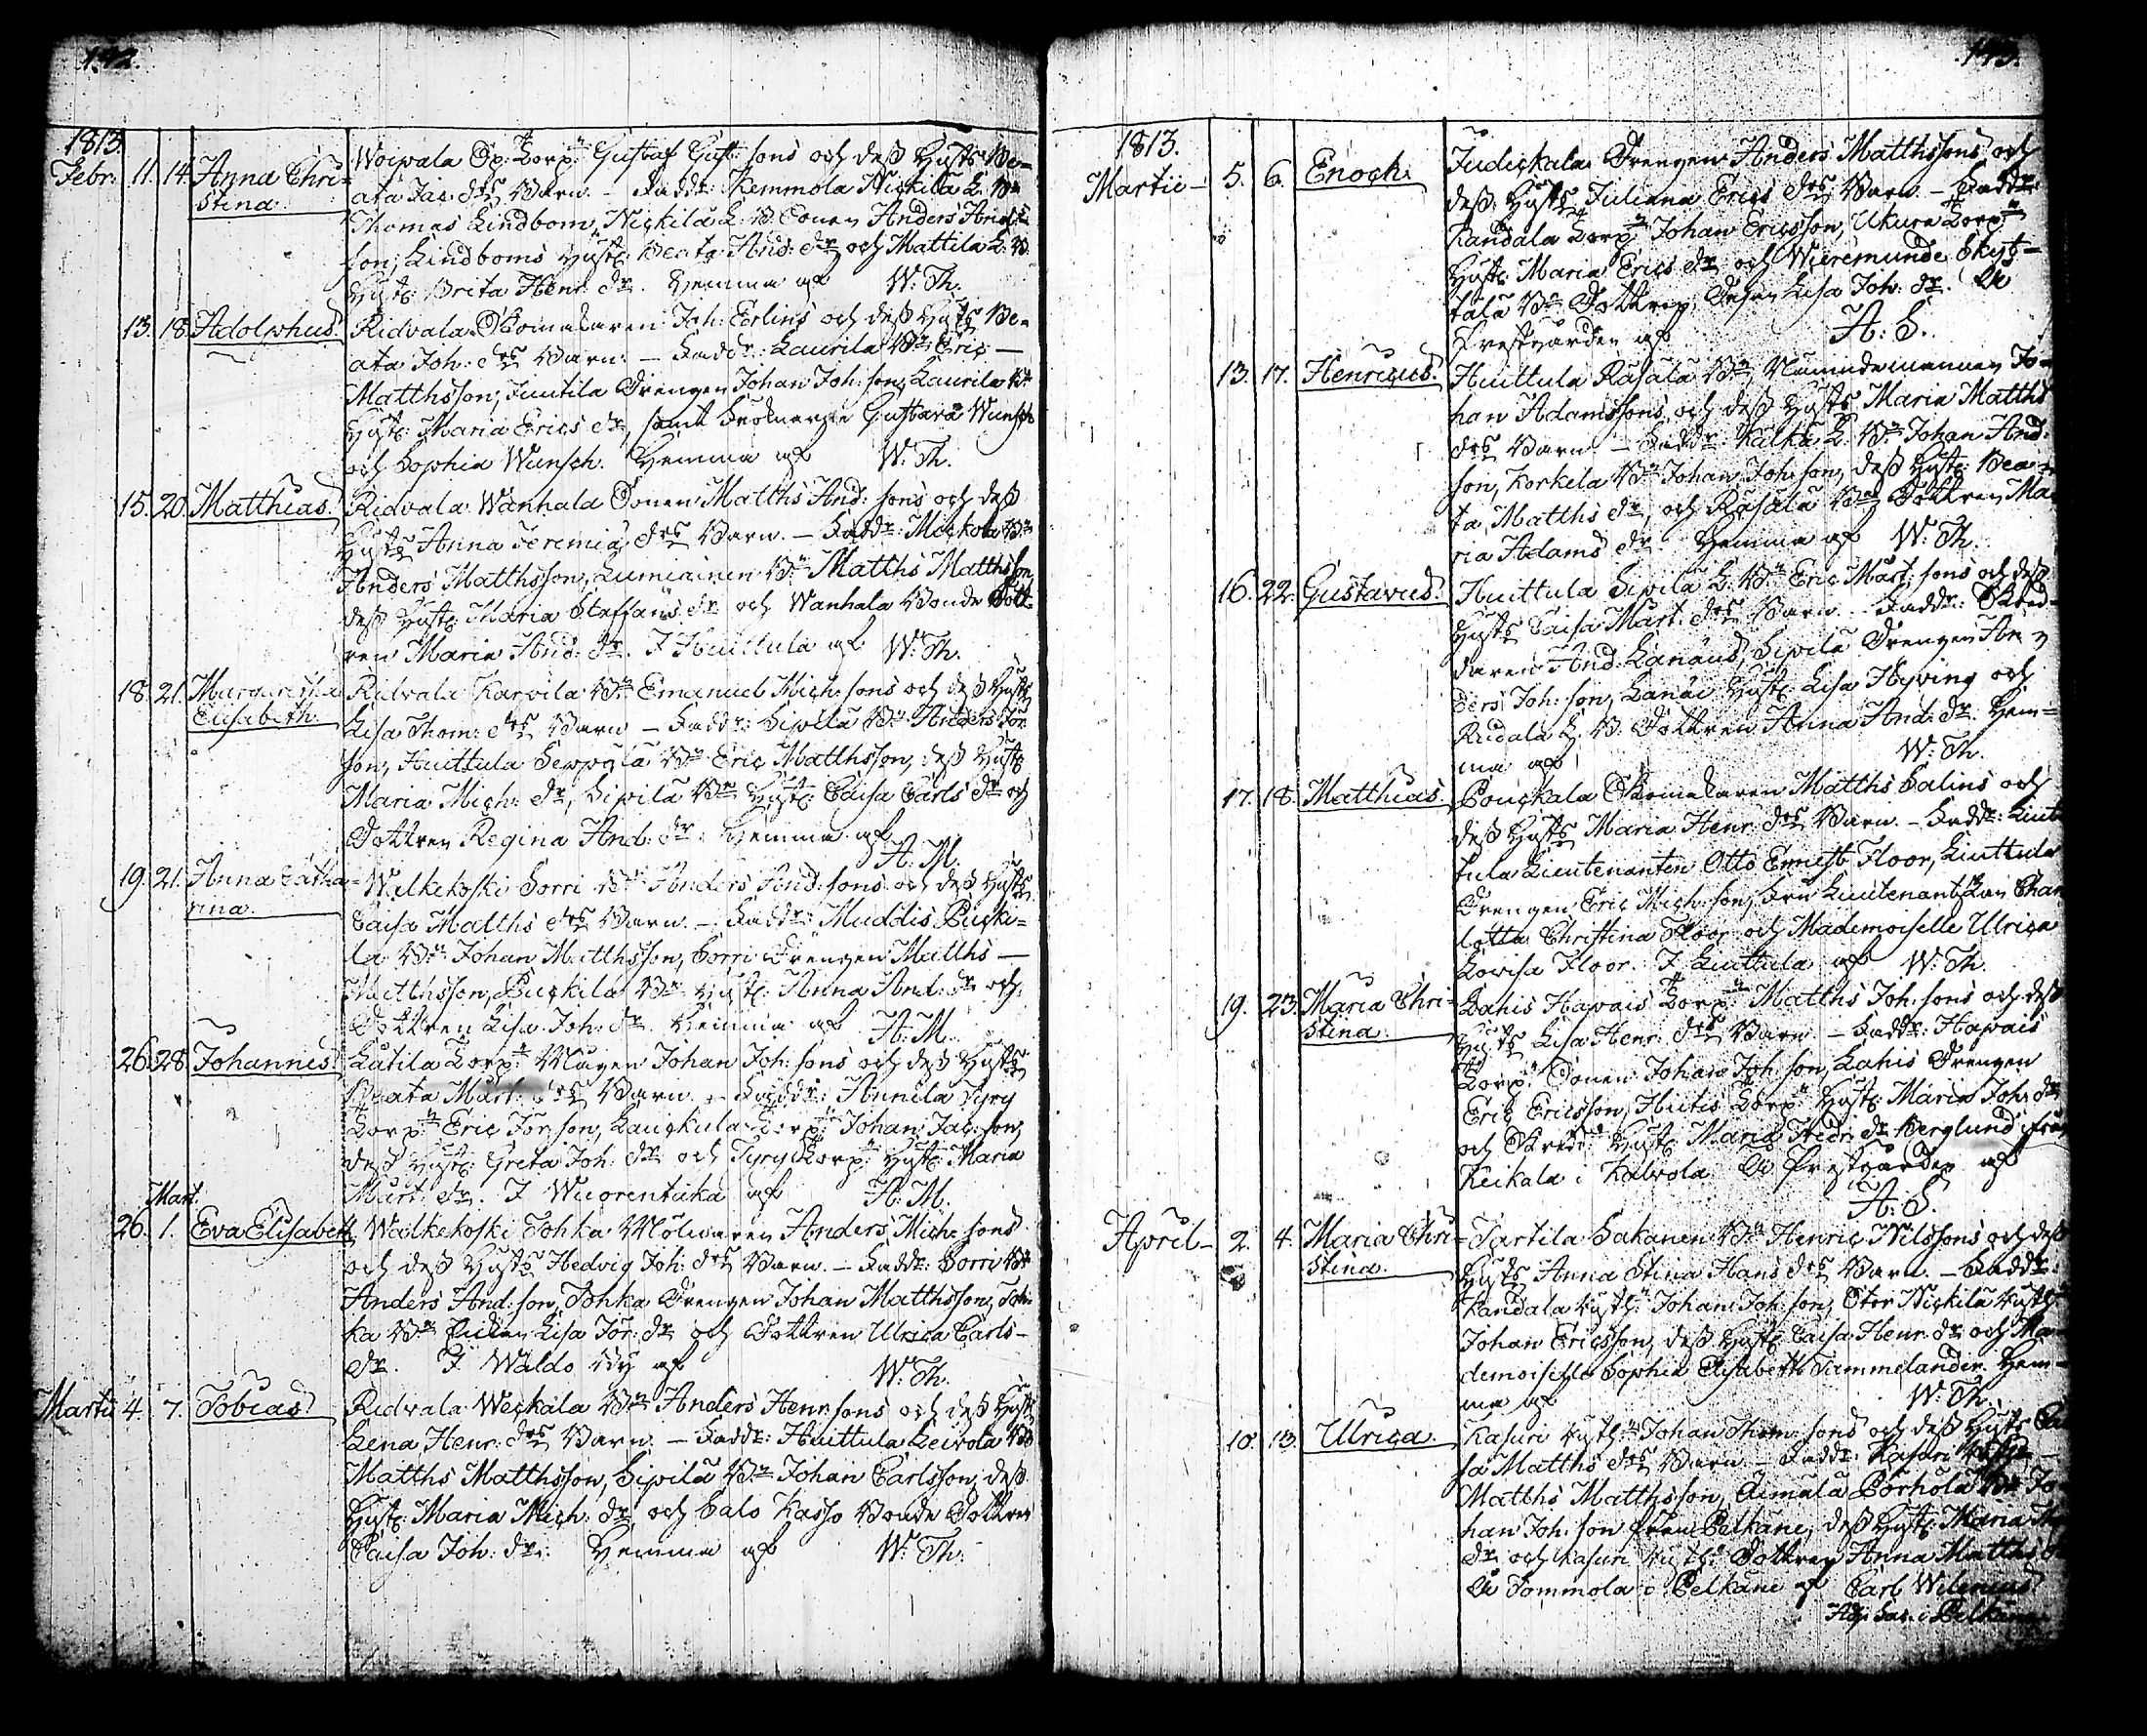 192.
1813.
Febr. 11. 14. Anna Chri= Woipala Sp. Torp. Gustaf Gust. sons och deß Hustr Be=
stina. ata Jac. drs Barn. – Fadd: Kemmola Nickila L. Bn
Thomas Lindbom, Nickilä L. B. Sonen Anders And:
son, Lindboms Hust: Beata And: dr och Mattila L. B.
Hust: Brita Henr. dr. Hemma af W: Th.
13. 18. Adolphus. Ridvala Skomakaren Joh: Eerlins och deß Hustr Be=
ata Joh: drs Barn. – Fadd: Laurila Bn Eric
Matthsson, Juutila Drengen Johan Joh: son, Laurila Bn
Hust: Maria Erics dr, samt Gustava Wunsch
och Sophia Wunsch. Hemma af W: Th.
15. 20. Matthias. Ridvala Wanhala Sonen Matths And: sons och deß
Hustrs Anna Jeremiæ drs Barn. – Fadd: Mickola Bn
Anders Matthsson, Lumiainen Bn Matths Matthsson,
deß Hust: Maria Staffans dr och Wanhala Bonde Dott=
ren Maria And: dr. I Huittula af W: Th.
18. 21. Margaretha Ridvala Karvila Bn Emanuel Mich: sons och deß Hustrs
Elisabeth. Lisa Thom: drs Barn – Fadd: Sipilä Bn Anders Jör:
son, Huittula Seppälä Bn Eric Matthsson, deß Hust:
Maria Mich: dr, Sipilä Bn Hust: Caisa Carls dr och
Dottren Regina And: dr. Hemma af
A: M.
19. 21. Anna Catha= Walkekoski Sorri Bn Anders And: sons och deß Hustrs
rina. Caisa Matths drs Barn. – Fadd: Muddis Pucki=
la Bn Johan Matthsson, Sorri Drengen Matths
Matthsson, Puckila Bn Hust: Anna And: dr och
Dottren Lisa Joh: dr. Hemma af A: M.
26. 28. Johannes. Latila Torp: Mågen Johan Joh: sons och deß Hustrs
Beata Mårt: drs Barn. – Fadd: Annila Tyry
Torp: Eric Jör: son, Lauckula Torp: Johan Jac: son,
deß Hust: Greta Joh: dr och Tyry Torp: Hust: Maria
Mårt: dr. I Wuorentaka af A: M.
Mart.
26. 1. Eva Elisabeth. Walkekoski Tohka Mölnaren Anders Mich: sons
och deß Hustrs Hedvig Joh: drs Barn. – Fadd: Sorri Bn
Anders And: son, Tohka Drengen Johan Matthsson, Toh=
ka Bn Pickan Lisa Jör: dr och Dottren Ulrica Carls
dr. I Waldo By af W: Th.
Martii 4. 7. Tobias. Ridvala Weckala Bn Anders Henr: sons och deß Hustrs
Lena Henr: drs Barn. – Fadd: Huittula Leivola Bn
Matths Matthsson, Sipilä Bn Johan Carlsson, deß
Hust: Maria Mich: dr och Salo Kasso Bonde Dottren
Caisa Joh: dr. Hemma af W: Th.
193.
1813.
Martii 5. 6. Enoch. Judickala Drengen Anders Matthssons och
deß Hustrs Juliana Erics drs Barn. – Fadd:
Kandala Torp: Johan Ericsson, Ukura Torp:
Hust: Maria Erics dr och Wieremunde Skyt=
tälä Bn Dottren, Lisa Joh: dr. På
Prestgården af A: S.
13. 17. Henricus. Huittula Rasala Bn Nämndemannen Jo=
han Adamssons och deß Hustrs Maria Matths
drs Barn – Fadd: Kalka L. Bn Johan And:
son, Korkela Bn Johan Joh: son, deß Hust: Bea=
ta Matths dr, och Rasala Bn Dottren Ma=
ria Adams dr. Hemma af W: Th.
16. 22. Gustavus. Huittula Sipilä L. Bn Eric Mårt: sons och deß
Hustrs Caisa Mårt: drs Barn. – Fadd: Skräd=
daren And: Lanæus, Sipilä Drengen An=
ders Joh: son, Lanæi Hust: Lisa Hyving och
Rudala L. B. Dottren Anna And: dr. Hem=
ma af W: Th.
17. 18. Matthias. Pouckala Skomakaren Matths Salins och
deß Hustrs Maria Henr: drs Barn. – Fadd: Liut=
tula Lieutenanten Otto Ernest Floor, Liuttula
Drengen Eric Mich: son, Fru Lieutenantskan Char
lotta Christina Floor och Mademoiselle Ulrica
Lovisa Floor. I Liuttula af W: Th.
19. 23. Maria Chri= Lahis Hapais Torp: Matths Joh: sons och deß
stina. Hustrs Lisa Henr: drs Barn – Fadd: Hapais
Torp: Sonen Johan Joh: son, Lahis Drengen
Eric Ericsson, Hutis Torp: Hust: Maria Joh: dr
och Skrädd: Hust: Maria Fredr: dr Berglund ifrån
Keikala i Kalvola. På Prestgården af
A: S.
April 2. 4. Maria Chri= Tartila Sakanen Bn Henric Nilssons och deß
stina. Hustrs Anna Stina Hans drs Barn. – Fadd:
Kandala Rusth: Johan Joh: son, Stor Nickilä Rusth:
Johan Ericsson, deß Hust: Caisa Henr: dr och Ma=
demoiselle Sophia Elisabeth Tammelander. Hem=
ma af W: Th.
10. 13. Ulrica. Kasuri Rusth: Johan Thom: sons och deß Hustr Cai
sa Matths drs Barn – Fadd: Kasuri Rusth:
Matths Matthsson, Aimälä Pörhölä Bn Jo=
han Joh: son från Pelkäne, deß Hust: Maria
dr och Kasuri Rusth: Dottren Anna Matths dr
På Tommola i Pelkäne af Carl Wilenius
Adj: Sac: i Pelkäne.